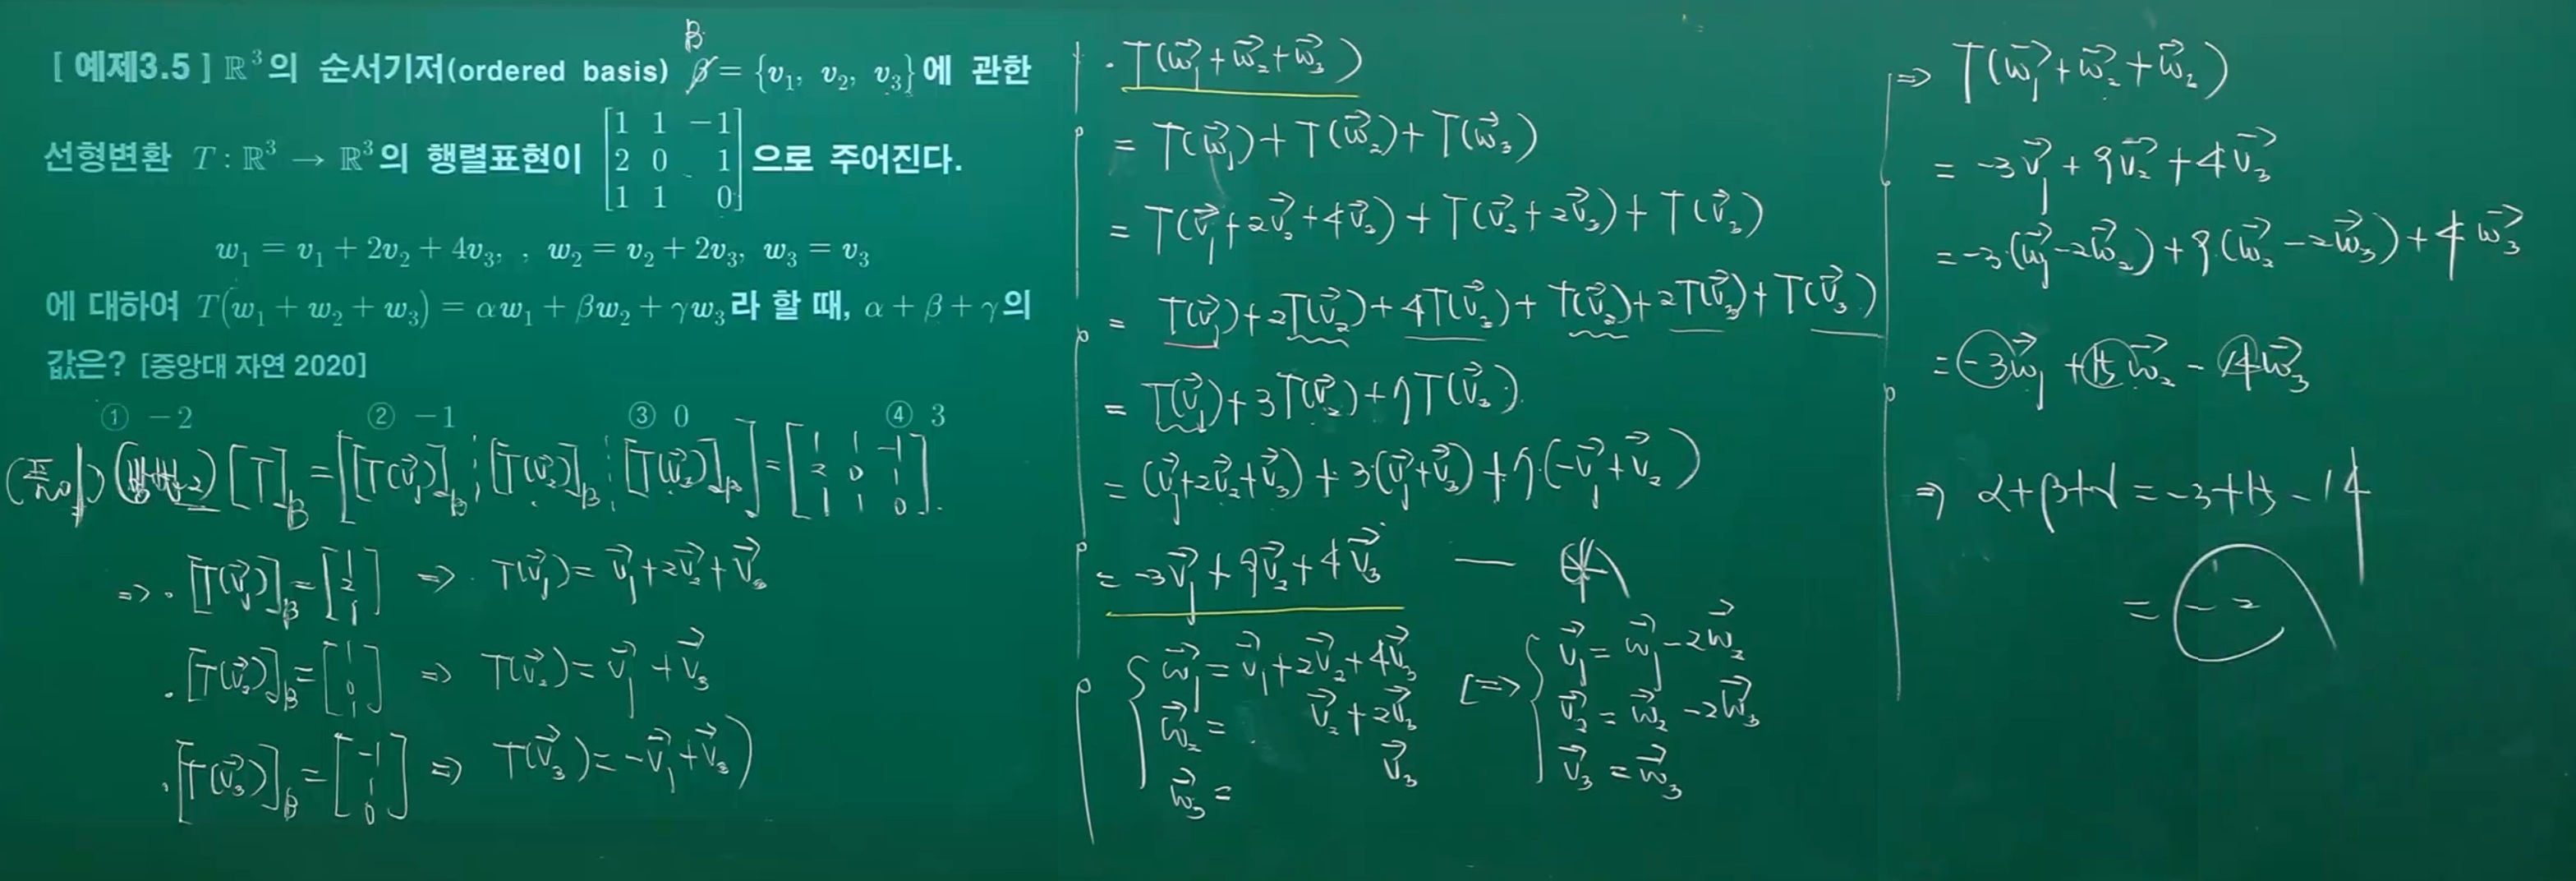 [ 예제3.5 ] ℝ³의 순서기저(ordered basis) β = {v₁, v₂, v₃}에 관한
B
선형변환 T : ℝ³ → ℝ³의 행렬표현이 [1 1 −1; 2 0 1; 1 1 0]으로 주어진다.
w₁ = v₁ + 2v₂ + 4v₃, , w₂ = v₂ + 2v₃, w₃ = v₃
에 대하여 T(w₁ + w₂ + w₃) = αw₁ + βw₂ + γw₃라 할 때, α + β + γ의
값은? [중앙대 자연 2020]
① −2 ② −1 ③ 0 ④ 3
(풀이) [T]_B = [[T(v⃗₁)]_B ⋮ [T(v⃗₂)]_B ⋮ [T(v⃗₃)]_B] = [1 1 −1; 2 0 1; 1 1 0].
⇒ · [T(v⃗₁)]_B = [1; 2; 1] ⇒ T(v⃗₁) = v⃗₁ + 2v⃗₂ + v⃗₃
· [T(v⃗₂)]_B = [1; 0; 1] ⇒ T(v⃗₂) = v⃗₁ + v⃗₃
· [T(v⃗₃)]_B = [−1; 1; 0] ⇒ T(v⃗₃) = −v⃗₁ + v⃗₃)
· T(w⃗₁ + w⃗₂ + w⃗₃)
= T(w⃗₁) + T(w⃗₂) + T(w⃗₃)
= T(v⃗₁ + 2v⃗₂ + 4v⃗₃) + T(v⃗₂ + 2v⃗₃) + T(v⃗₃)
= T(v⃗₁) + 2T(v⃗₂) + 4T(v⃗₃) + T(v⃗₂) + 2T(v⃗₃) + T(v⃗₃)
= T(v⃗₁) + 3T(v⃗₂) + 7T(v⃗₃)
= (v⃗₁ + 2v⃗₂ + v⃗₃) + 3·(v⃗₁ + v⃗₃) + 7·(−v⃗₁ + v⃗₂)
= −3v⃗₁ + 9v⃗₂ + 4v⃗₃ —
{ w⃗₁ = v⃗₁ + 2v⃗₂ + 4v⃗₃ [⇒ { v⃗₁ = w⃗₁ − 2w⃗₂
w⃗₂ = v⃗₂ + 2v⃗₃ v⃗₂ = w⃗₂ − 2w⃗₃
w⃗₃ = v⃗₃ v⃗₃ = w⃗₃
⇒ T(w⃗₁ + w⃗₂ + w⃗₂)
= −3v⃗₁ + 9v⃗₂ + 4v⃗₃
= −3·(w⃗₁ − 2w⃗₂) + 9(w⃗₂ − 2w⃗₃) + 4w⃗₃
= −3w⃗₁ + 15w⃗₂ − 14w⃗₃
⇒ α + β + γ = −3 + 15 − 14
= −2